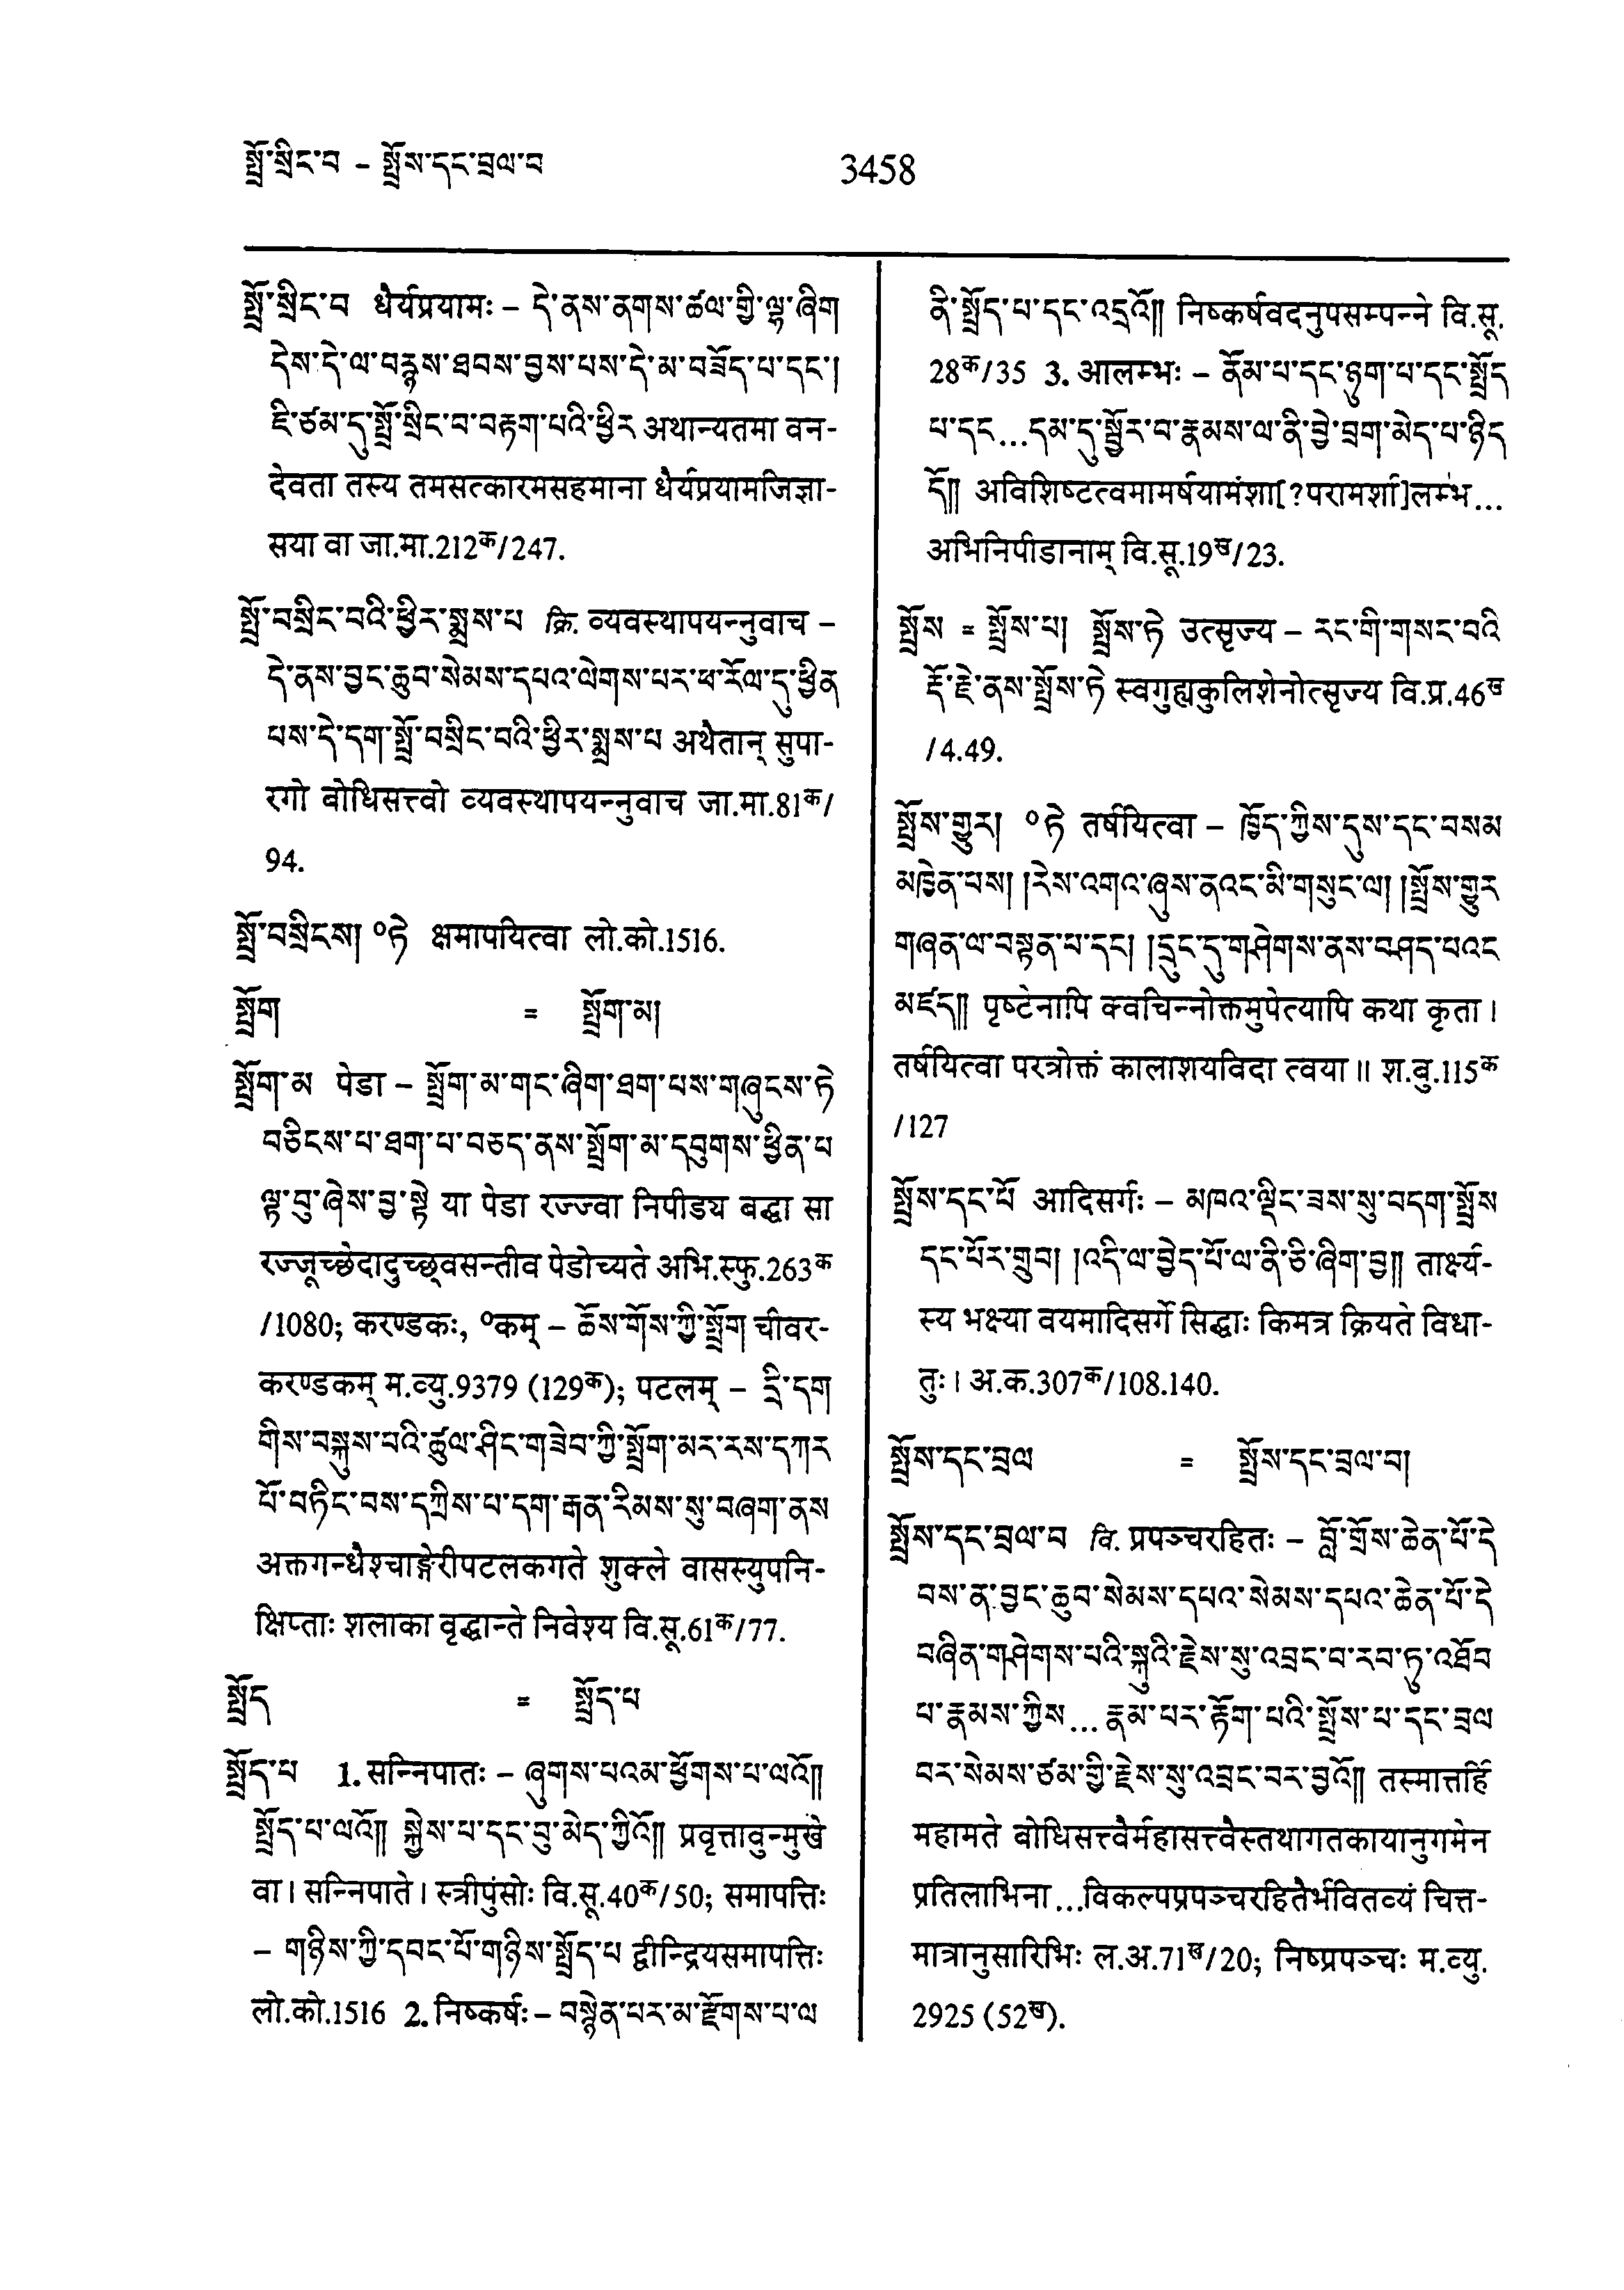 སྤྲོ་སྲིང་བ – སྤྲོས་དང་བྲལ་བ
3458
སྤྲོ་སྲིང་བ धैर्यप्रयामः – དེ་ནས་ནགས་ཚལ་གྱི་ལྷ་ཞིག
དེས་དེ་ལ་བརྙས་ཐབས་བྱས་པས་དེ་མ་བཟོད་པ་དང་།
ཇི་ཙམ་དུ་སྤྲོ་སྲིང་བ་བརྟག་པའི་ཕྱིར अथान्यतमा वन-
देवता तस्य तमसत्कारमसहमाना धैर्यप्रयामजिज्ञा-
सया वा जा.मा.212क/247.
སྤྲོ་བསྲིང་བའི་ཕྱིར་སྨྲས་པ क्रि. व्यवस्थापयन्नुवाच –
དེ་ནས་བྱང་ཆུབ་སེམས་དཔའ་ལེགས་པར་ཕ་རོལ་དུ་ཕྱིན
པས་དེ་དག་སྤྲོ་བསྲིང་བའི་ཕྱིར་སྨྲས་པ अथैतान् सुपा-
रगो बोधिसत्त्वो व्यवस्थापयन्नुवाच जा.मा.81क/
94.
སྤྲོ་བསྲིངས། ०ཏེ क्षमापयित्वा लो.को.1516.
སྤྲོག = སྤྲོག་མ།
སྤྲོག་མ पेडा – སྤྲོག་མ་གང་ཞིག་ཐག་པས་གཞུངས་ཏེ
བཅིངས་པ་ཐག་པ་བཅད་ནས་སྤྲོག་མ་དབུགས་ཕྱིན་པ
ལྟ་བུ་ཞེས་བྱ་སྟེ या पेडा रज्ज्वा निपीड्य बद्धा सा
रज्जूच्छेदादुच्छ्वसन्तीव पेडोच्यते अभि.स्फु.263क
/1080; करण्डकः, ०कम् – ཆོས་གོས་ཀྱི་སྤྲོག चीवर-
करण्डकम् म.व्यु.9379 (129क); पटलम् – དྲི་དག
གིས་བསྐུས་པའི་ཚུལ་ཤིང་གཟེབ་ཀྱི་སྤྲོག་མར་རས་དཀར
པོ་བཏིང་བས་དཀྲིས་པ་དག་རྒན་རིམས་སུ་བཞག་ནས
अक्तगन्धैश्चाङ्गेरीपटलकगते शुक्ले वासस्युपनि-
क्षिप्ताः शलाका वृद्धान्ते निवेश्य वि.सू.61क/77.
སྤྲོད = སྤྲོད་པ
སྤྲོད་པ 1. सन्निपातः – ཞུགས་པའམ་ཕྱོགས་པ་ལའོ༎
སྤྲོད་པ་ལའོ༎ སྐྱེས་པ་དང་བུ་མེད་ཀྱིའོ༎ प्रवृत्तावुन्मुखे
वा। सन्निपाते। स्त्रीपुंसोः वि.सू.40क/50; समापत्तिः
– གཉིས་ཀྱི་དབང་པོ་གཉིས་སྤྲོད་པ द्वीन्द्रियसमापत्तिः
लो.को.1516 2. निष्कर्षः – བསྙེན་པར་མ་རྫོགས་པ་ལ
ནི་སྤྲོད་པ་དང་འདྲའོ༎ निष्कर्षवदनुपसम्पन्ने वि.सू.
28क/35 3. आलम्भः – ནོམ་པ་དང་ཉུག་པ་དང་སྤྲོད
པ་དང...དམ་དུ་སྦྱོར་བ་རྣམས་ལ་ནི་བྱེ་བྲག་མེད་པ་ཉིད
དོ༎ अविशिष्टत्वमामर्षयामंशा[?परामर्शा]लम्भ...
अभिनिपीडानाम् वि.सू.19ख/23.
སྤྲོས = སྤྲོས་པ། སྤྲོས་ཏེ उत्सृज्य – རང་གི་གསང་བའི
རྡོ་རྗེ་ནས་སྤྲོས་ཏེ स्वगुह्यकुलिशेनोत्सृज्य वि.प्र.46ख
/4.49.
སྤྲོས་གྱུར། ०ཏེ तर्षयित्वा – ཁྱོད་ཀྱིས་དུས་དང་བསམ
མཁྱེན་པས། །རེས་འགའ་ཞུས་ནའང་མི་གསུང་ལ། །སྤྲོས་གྱུར
གཞན་ལ་བསྟན་པ་དང། །དྲུང་དུ་གཤེགས་ནས་བཤད་པའང
མཛད༎ पृष्टेनापि क्वचिन्नोक्तमुपेत्यापि कथा कृता।
तर्षयित्वा परत्रोक्तं कालाशयविदा त्वया॥ श.बु.115क
/127
སྤྲོས་དང་པོ आदिसर्गः – མཁའ་ལྡིང་ཟས་སུ་བདག་སྤྲོས
དང་པོར་གྲུབ། །འདི་ལ་བྱེད་པོ་ལ་ནི་ཅི་ཞིག་བྱ༎ तार्क्ष्य-
स्य भक्ष्या वयमादिसर्गे सिद्धाः किमत्र क्रियते विधा-
तुः। अ.क.307क/108.140.
སྤྲོས་དང་བྲལ = སྤྲོས་དང་བྲལ་བ།
སྤྲོས་དང་བྲལ་བ वि. प्रपञ्चरहितः – བློ་གྲོས་ཆེན་པོ་དེ
བས་ན་བྱང་ཆུབ་སེམས་དཔའ་སེམས་དཔའ་ཆེན་པོ་དེ
བཞིན་གཤེགས་པའི་སྐུའི་རྗེས་སུ་འབྲང་བ་རབ་ཏུ་འཐོབ
པ་རྣམས་ཀྱིས... རྣམ་པར་རྟོག་པའི་སྤྲོས་པ་དང་བྲལ
བར་སེམས་ཙམ་གྱི་རྗེས་སུ་འབྲང་བར་བྱའོ༎ तस्मात्तर्हि
महामते बोधिसत्त्वैर्महासत्त्वैस्तथागतकायानुगमेन
प्रतिलाभिना...विकल्पप्रपञ्चरहितैर्भवितव्यं चित्त-
मात्रानुसारिभिः ल.अ.71ख/20; निष्प्रपञ्चः म.व्यु.
2925 (52ख).